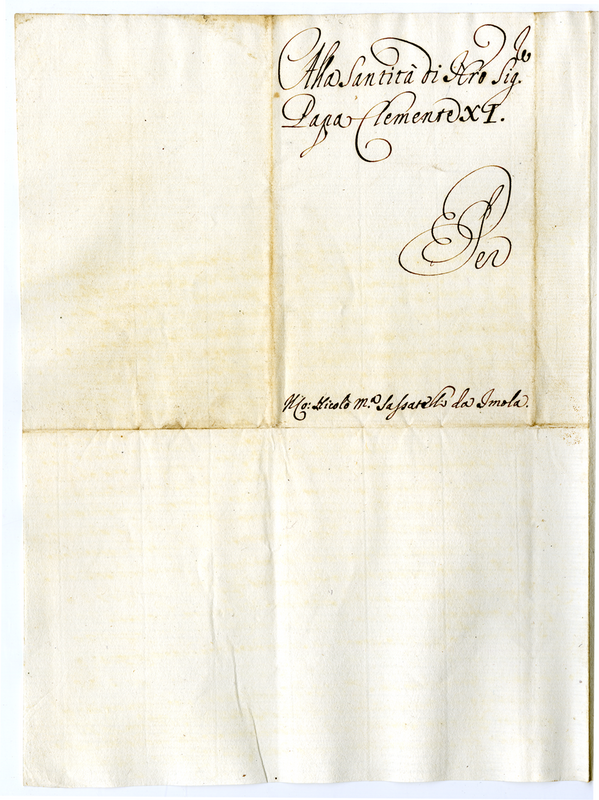 Alla Santità di Nro Sig.re
Papa Clemente XI.
Per
Nicolò M.a Sassatelli da Imola.